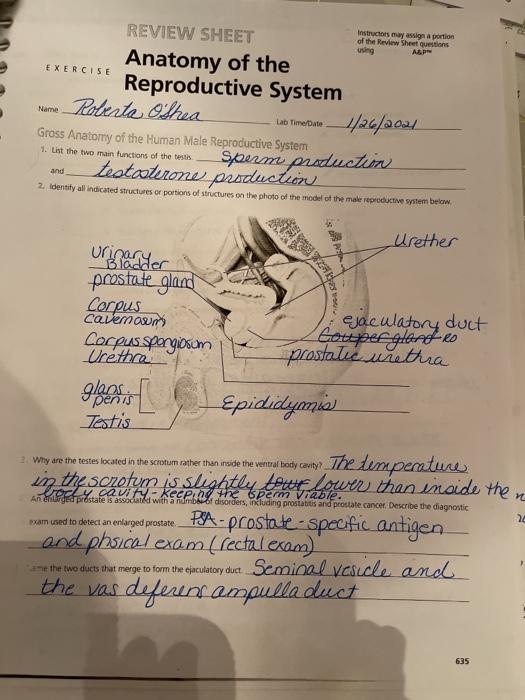 REVIEW SHEET
Instructors may assign a portion
of the Review Sheet questions
using
EXERCISE
Anatomy of the
Reproductive System
Name Roberta O'Shea Lab Time/Date 1/26/2021
Gross Anatomy of the Human Male Reproductive System
1. List the two main functions of the testis. Sperm production
and testosterone production
2. Identify all indicated structures or portions of structures on the photo of the model of the male reproductive system below.
Urether
Urinary
Bladder
prostate gland
Corpus
cavernosum
ejaculatory duct
Corpus spongiosum
Couper gland RO
Urethra
prostatic urethra
glans
penis
Epididymis
Testis
Why are the testes located in the scrotum rather than inside the ventral body cavity? The temperature
in the scrotum is slightly lower than inside the
body cavity - keeping the sperm viable.
An enlarged prostate is associated with a number of disorders, including prostatitis and prostate cancer. Describe the diagnostic
exam used to detect an enlarged prostate. PSA - prostate-specific antigen
and phsical exam (rectal exam)
the two ducts that merge to form the ejaculatory duct. Seminal vesicle and
the vas deferens ampulla duct
635